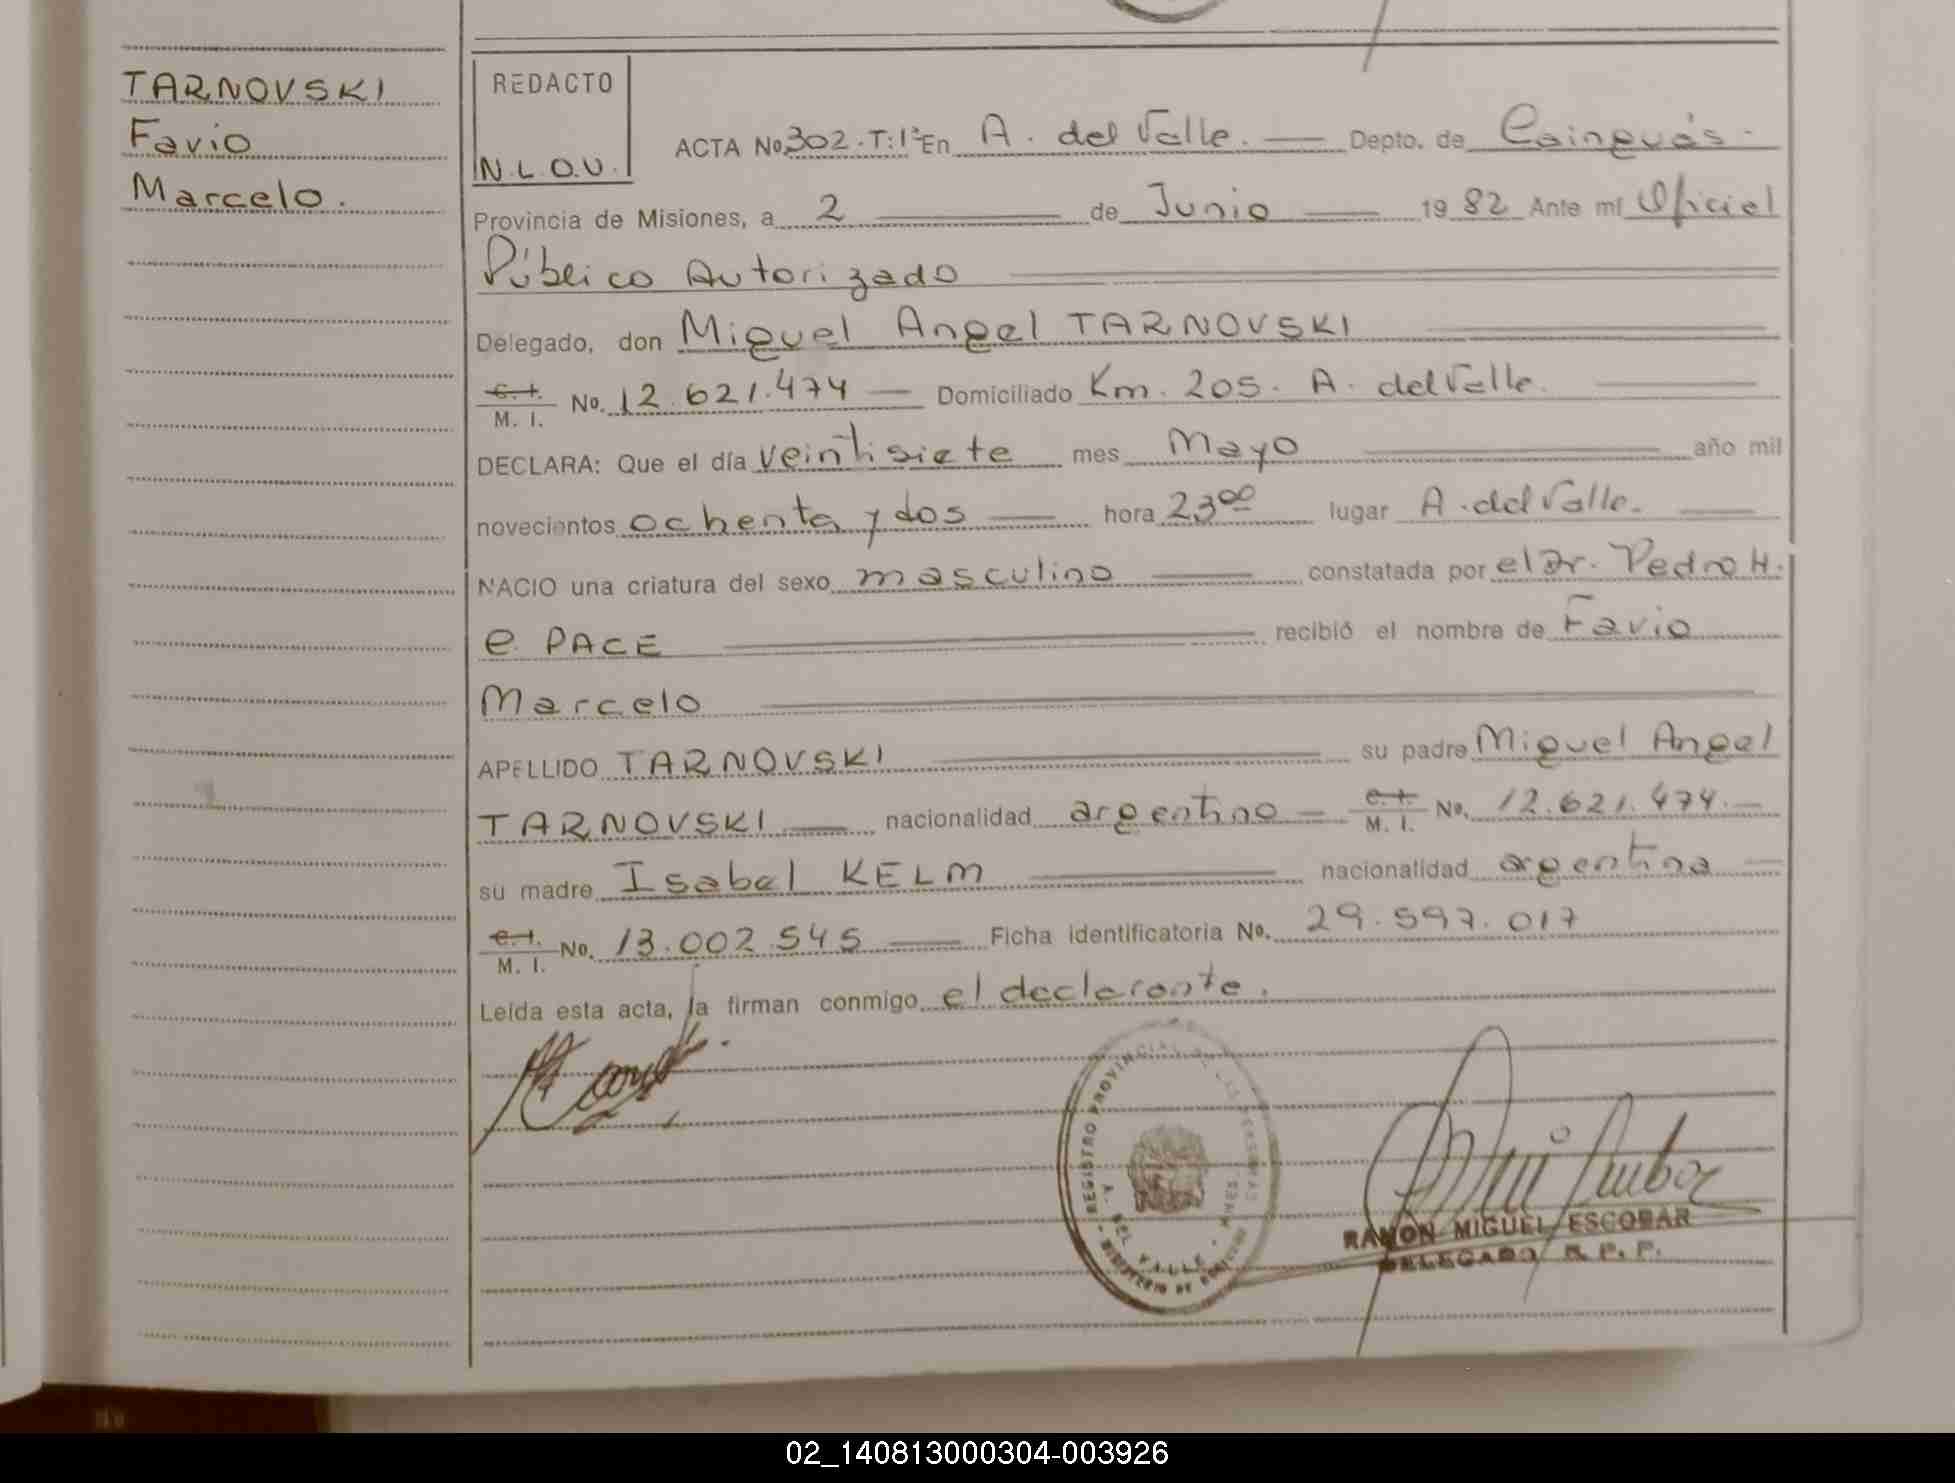 TARNOVSKI
Favio
Marcelo.
REDACTO
N.L.O.V.
ACTA No. 302.T:1º En A. del Valle. Depto. de Cainguás.
Provincia de Misiones, a 2 de Junio 1982 Ante mí Oficial
Público Autorizado
Delegado, don Miguel Angel TARNOVSKI
C. I.
M. I. No. 12.621.474 Domiciliado Km. 205. A. del Valle.
DECLARA: Que el día veintisiete mes Mayo año mil
novecientos ochenta y dos hora 23⁰⁰ lugar A. del Valle.
NACIO una criatura del sexo masculino constatada por el Dr. Pedro H.
e PACE recibió el nombre de Favio
Marcelo
APELLIDO TARNOVSKI su padre Miguel Angel
TARNOVSKI nacionalidad argentino C. I. M. I. No. 12.621.474.
su madre Isabel KELM nacionalidad argentina
C. I.
M. I. No. 13.002.545 Ficha identificatoria No. 29.597.017
Leída esta acta, la firman conmigo el declarante.
REGISTRO PROVINCIAL DE LAS PERSONAS
A. DEL VALLE - MNES
MINISTERIO DE
RAMON MIGUEL ESCOBAR
DELEGADO R. P. P.
02_140813000304-003926